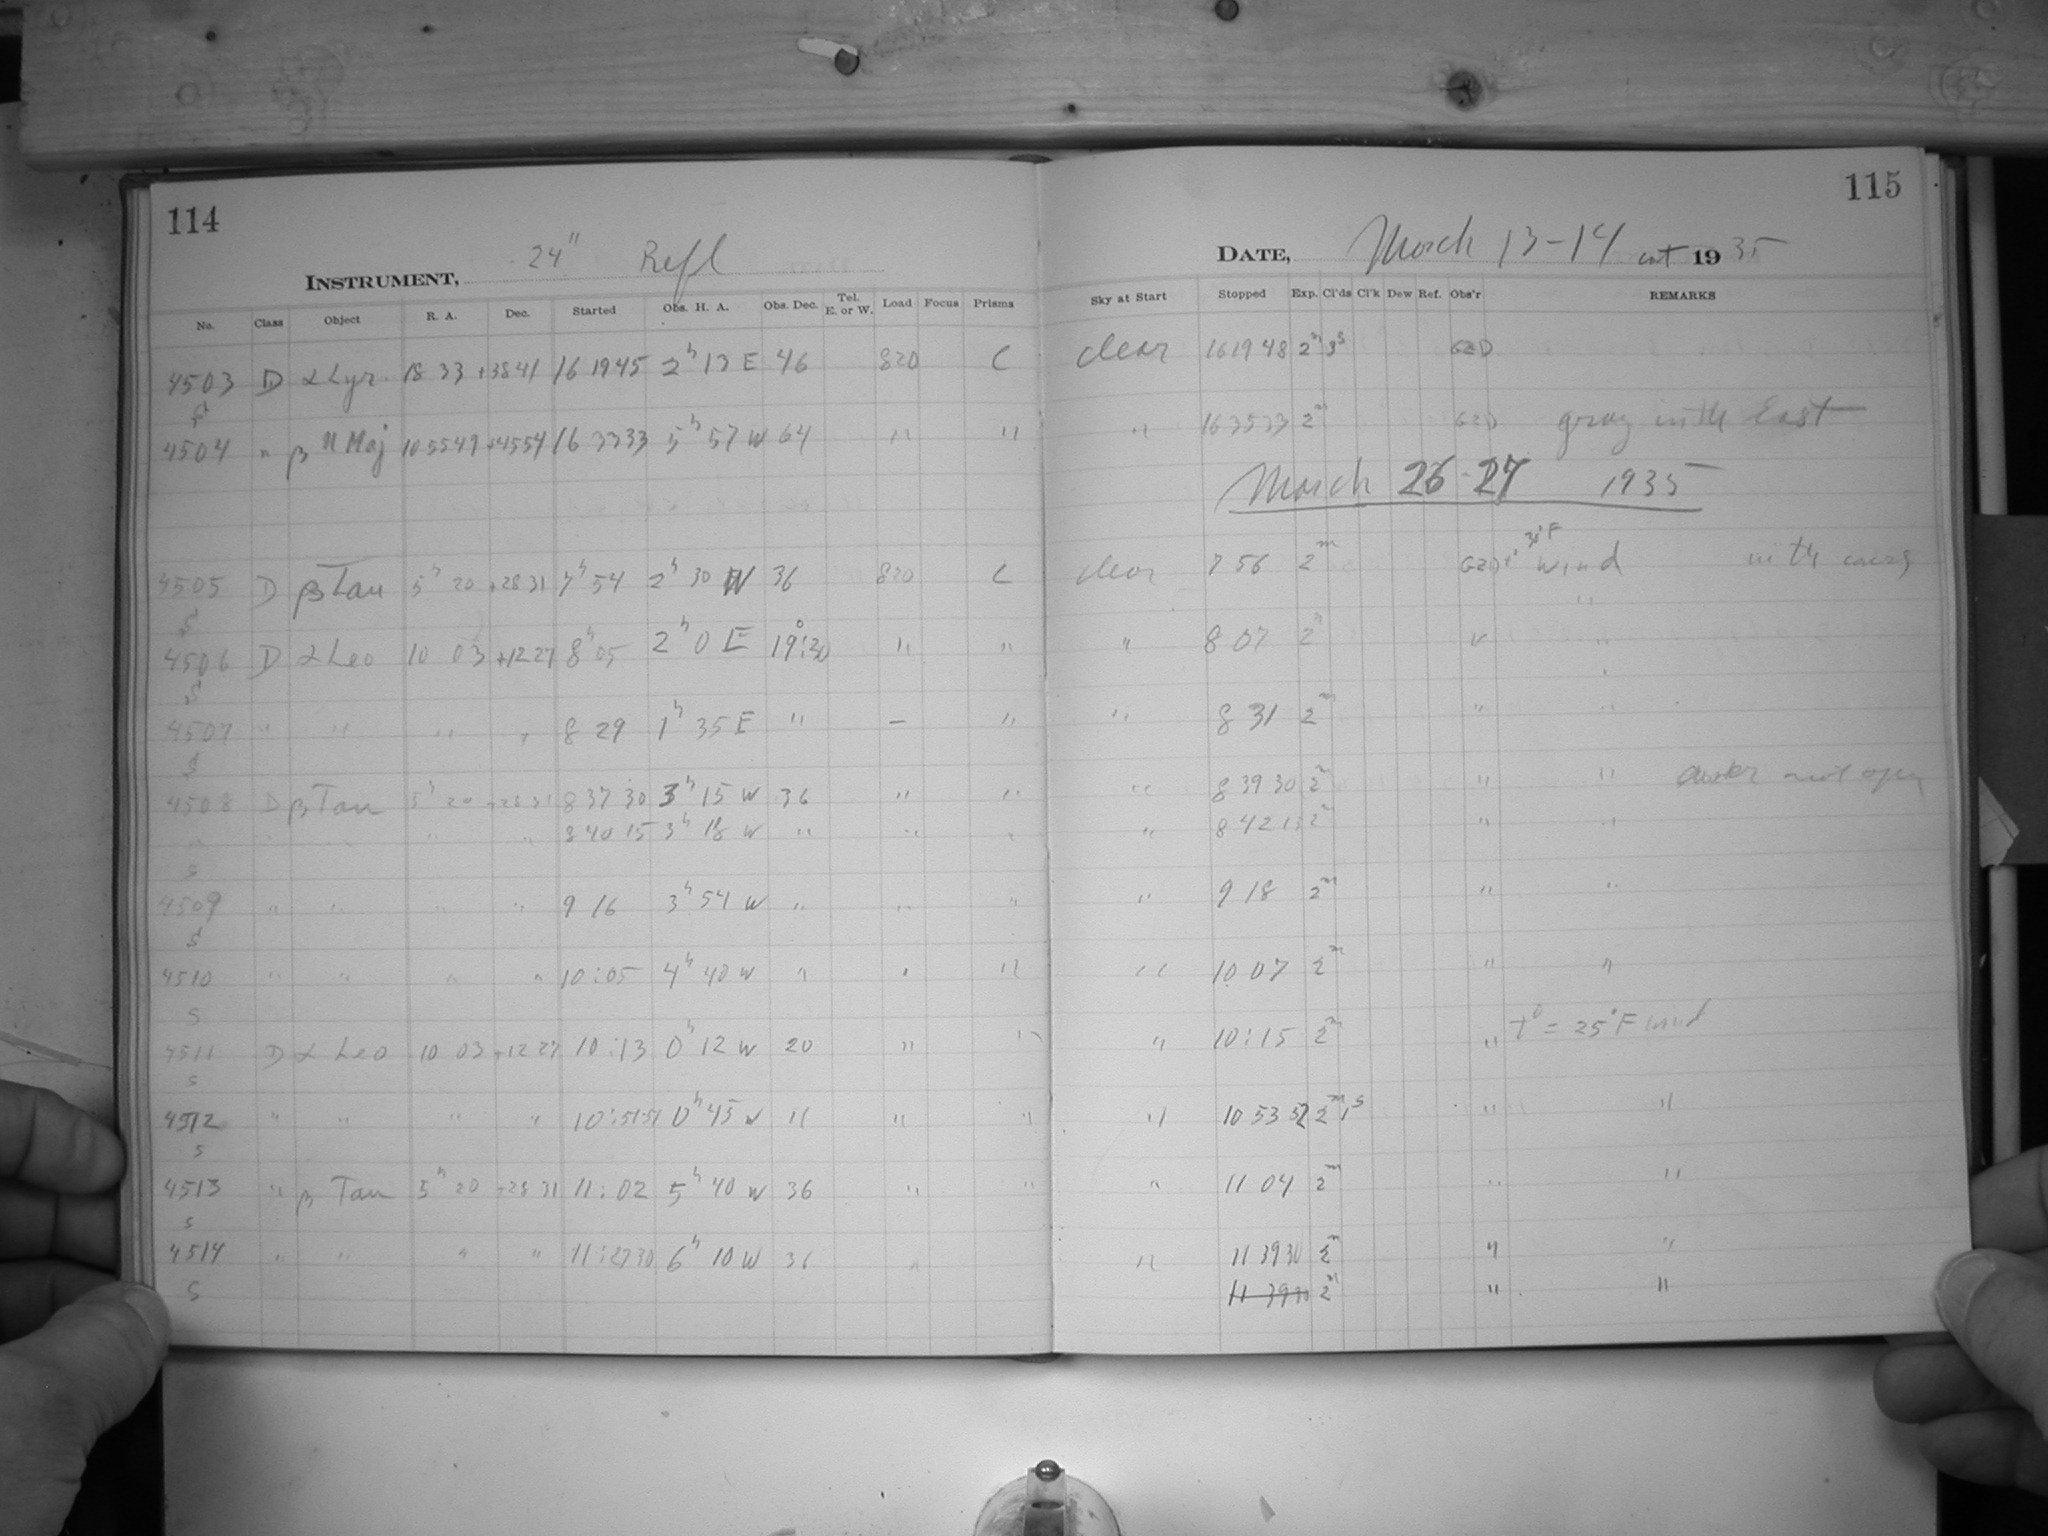 114
INSTRUMENT, 24" Refl
No. Class Object R. A. Dec. Started Obs. H. A. Obs. Dec. Tel. E. or W. Load Focus Prisms
4503 D α Lyr. 18 33 +38 41 16 19 45 2h 13 E 46 820 C
S
4504 " β U Maj 10 55 49 +45 54 16 33 33 5h 57 W 64 " "
4505 D β Tau 5h 20 +28 31 7h 54 2h 30 W 36 820 C
S
4506 D α Leo 10 03 +12 27 8h 05 2h 0 E 19°:30 " "
S
4507 " " " " 8 29 1h 35 E " - "
S
4508 D β Tau 5h 20 +28 31 8 37 30 3h 15 W 36 " "
" " " " " 8 40 15 3h 18 W " " "
S
4509 " " " " 9 16 3h 54 W " " "
S
4510 " " " " 10:05 4h 40 W " " "
S
4511 D α Leo 10 03 +12 27 10:13 0h 12 W 20 " "
S
4512 " " " " 10:51:51 0h 45 W " " "
S
4513 " β Tau 5h 20 +28 31 11:02 5h 40 W 36 " "
S
4514 " " " " 11:27 30 6h 10 W 36 "
S
115
DATE, March 13-14 1935
Sky at Start Stopped Exp. Cl'ds Cl'k Dew Ref. Obs'r REMARKS
clear 16 19 48 2m 3s GZD
" 16 35 33 2m GZD gray in the East
March 26-27 1935
clear 7 56 2m GZD t° 30°F wind with
"
" 8 07 2m " "
" 8 31 2m " "
" 8 39 30 2m " " not open
" 8 42 15 2m " "
" 9 18 2m " "
" 10 07 2m " "
" 10:15 2m " t° = 25°F wind
" 10 53 52 2m 1s " "
" 11 04 2m " "
" 11 39 30 2m " "
11 39 30 2m " "